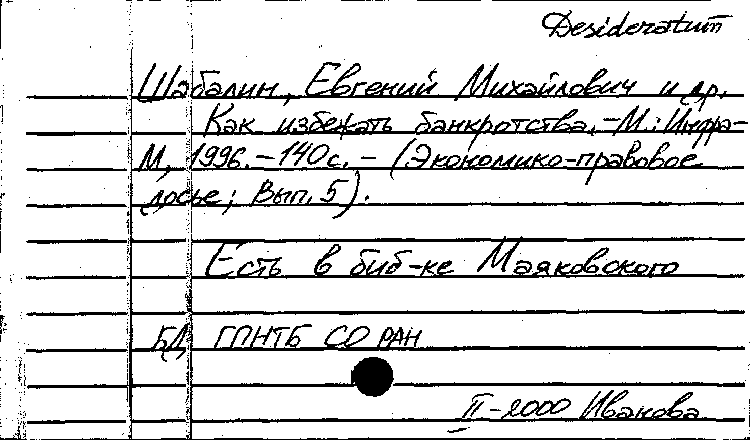 Desideratum
Шабалин, Евгений Михайлович и др.
Как избежать банкротства. - М.: Инфра-
М, 1996. - 140 с. - (Экономико-правовое
досье; Вып. 5).
Есть в биб-ке Маяковского
БД ГПНТБ СО РАН
II-2000 Иванова